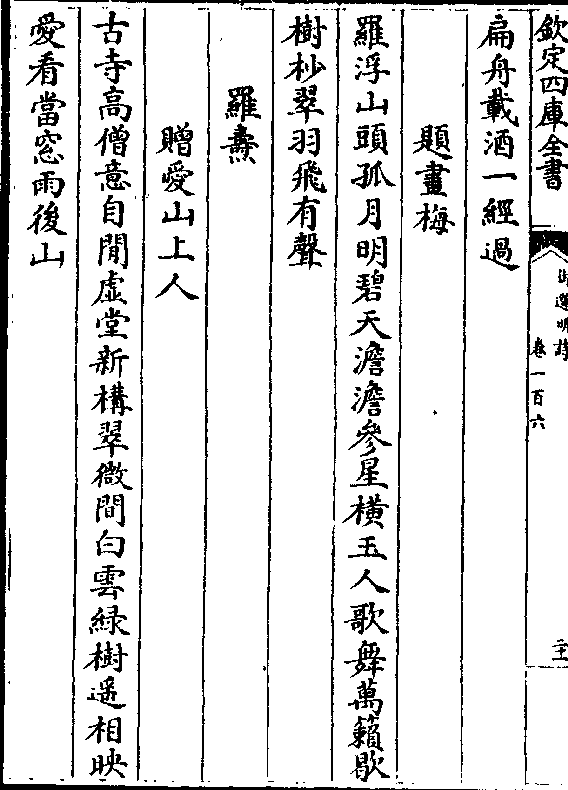 欽定四庫全書
御選明詩
卷一百六
二十
扁舟載酒一經過
題畫梅
羅浮山頭孤月明碧天澹澹參星橫玉人歌舞萬籟歇
樹杪翠羽飛有聲
羅燾
贈愛山上人
古寺高僧意自閒虛堂新構翠微間白雲綠樹遥相映
愛看當窓雨後山